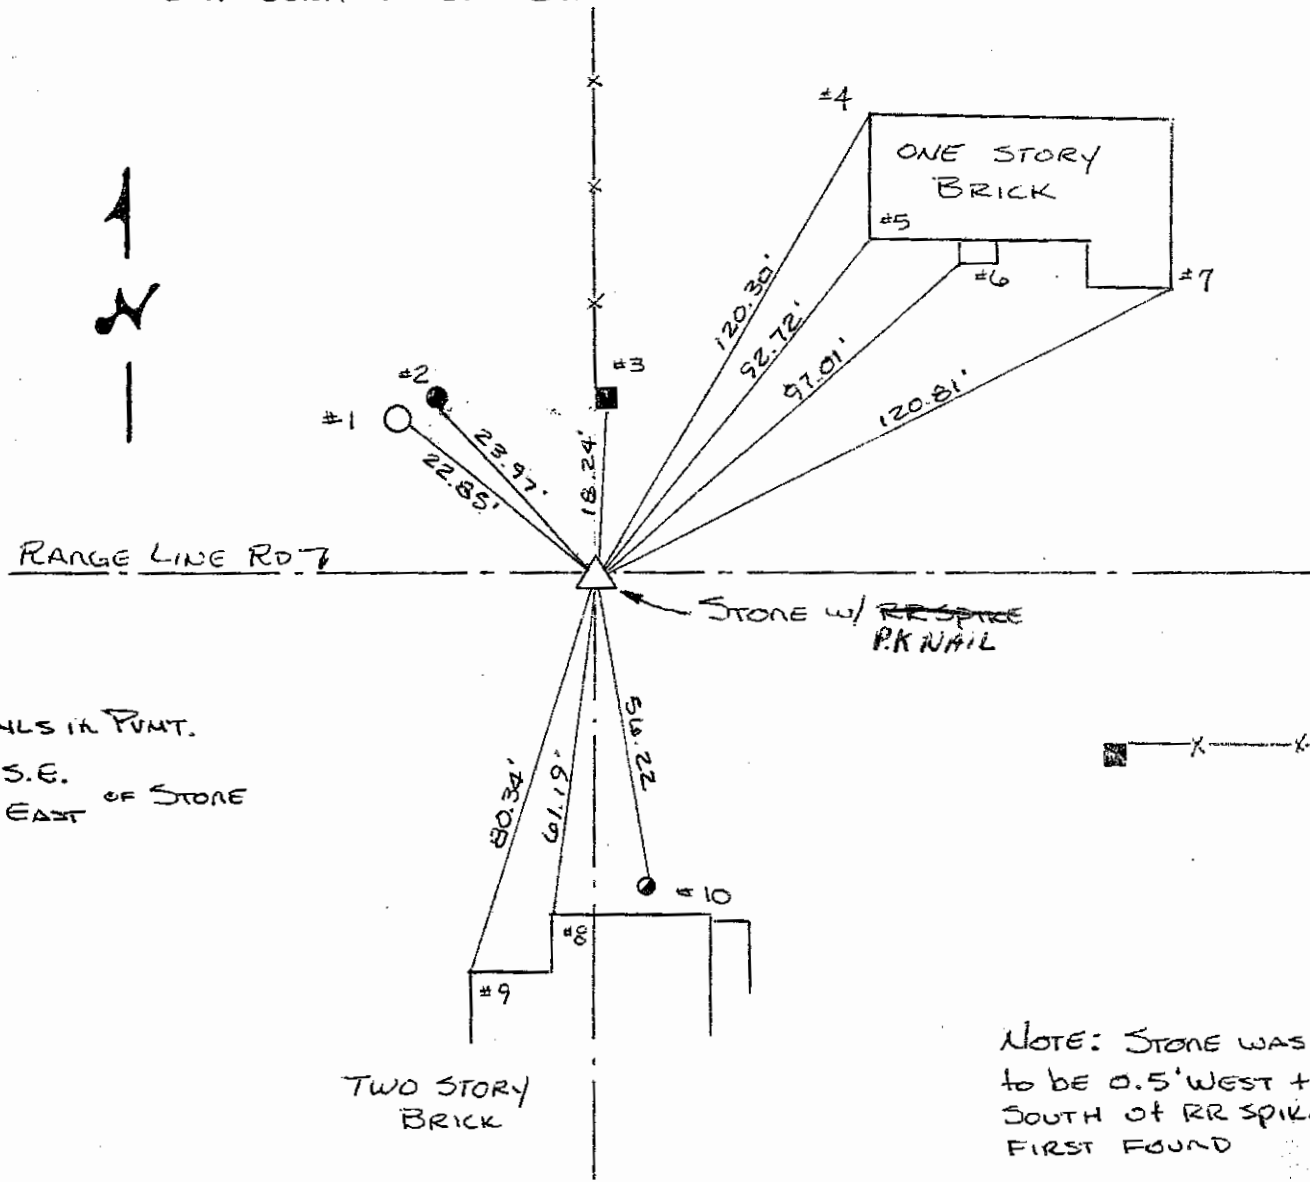 #4
ONE STORY
BRICK
#5
#6
#7
N
120.30'
92.72'
97.01'
120.81'
#2
#3
#1
23.97'
22.85'
18.24'
RANGE LINE RD
STONE W/ RR SPIKE
P.K NAIL
IN PVMT.
S.E.
EAST OF STONE
X X
80.34'
61.19'
56.22
#10
#8
#9
TWO STORY
BRICK
NOTE: STONE WAS
to be 0.5' WEST +
SOUTH of RR SPIK
FIRST FOUND